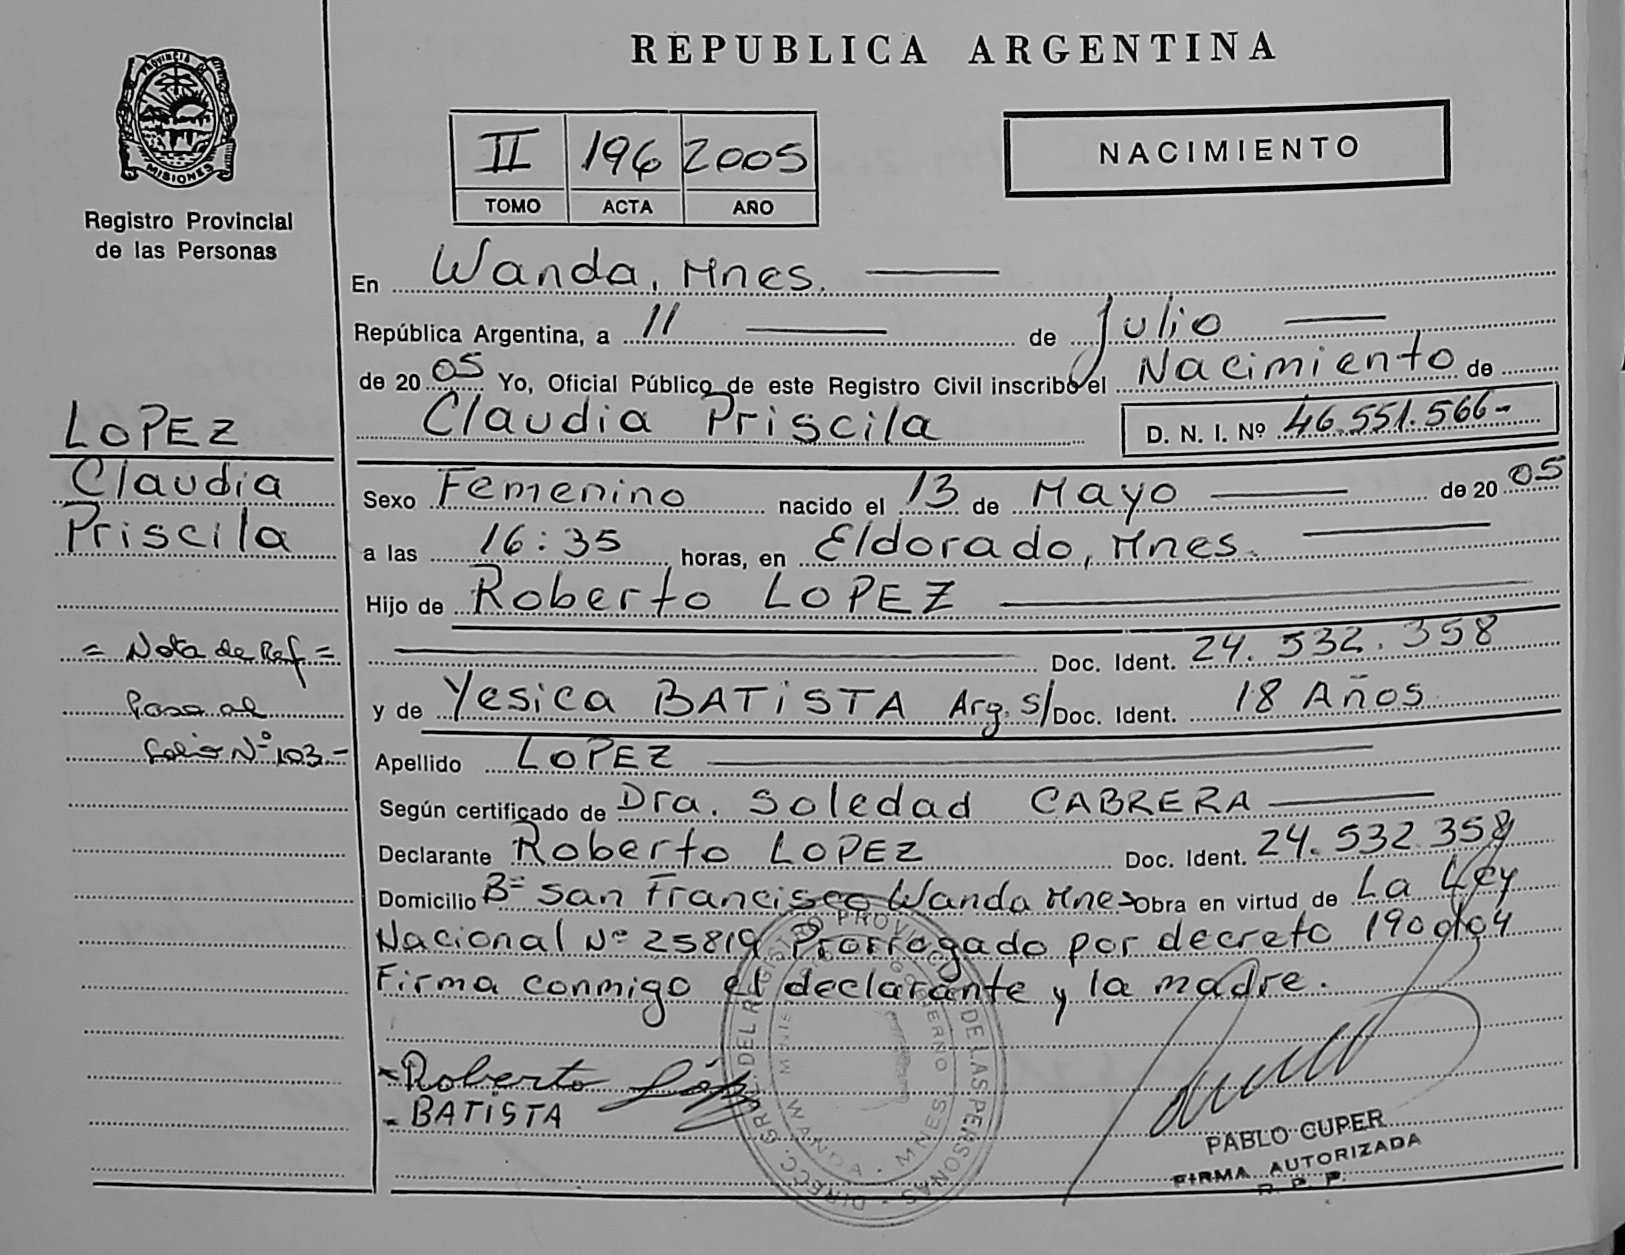 REPUBLICA ARGENTINA
PROVINCIA DE
MISIONES
Registro Provincial
de las Personas
II 196 2005
TOMO ACTA AÑO
NACIMIENTO
En Wanda, Mnes.
República Argentina, a 11 de Julio
de 2005 Yo, Oficial Público de este Registro Civil inscribo el Nacimiento de
Claudia Priscila D. N. I. Nº 46.551.566-
LOPEZ
Claudia
Priscila
Sexo Femenino nacido el 13 de Mayo de 2005
a las 16:35 horas, en Eldorado, Mnes.
Hijo de Roberto LOPEZ
Doc. Ident. 24.532.358
y de Yesica BATiSTA Arg. s/Doc. Ident. 18 Años
= Nota de Ref =
Pasa al
folio Nº 103.-
Apellido LOPEZ
Según certificado de Dra. Soledad CABRERA
Declarante Roberto LOPEZ Doc. Ident. 24.532.358
Domicilio Bº San Francisco Wanda Mnes Obra en virtud de La Ley
Nacional Nº 25819 Prorrogado por decreto 190
Firma conmigo el declarante y la madre.
- Roberto López
- BATiSTA
DIRECC. GRAL. DEL REGISTRO PROVINCIAL DE LAS PERSONAS
GOBIERNO
WANDA - MNES.
PABLO CUPER
FIRMA AUTORIZADA
R. P. P.